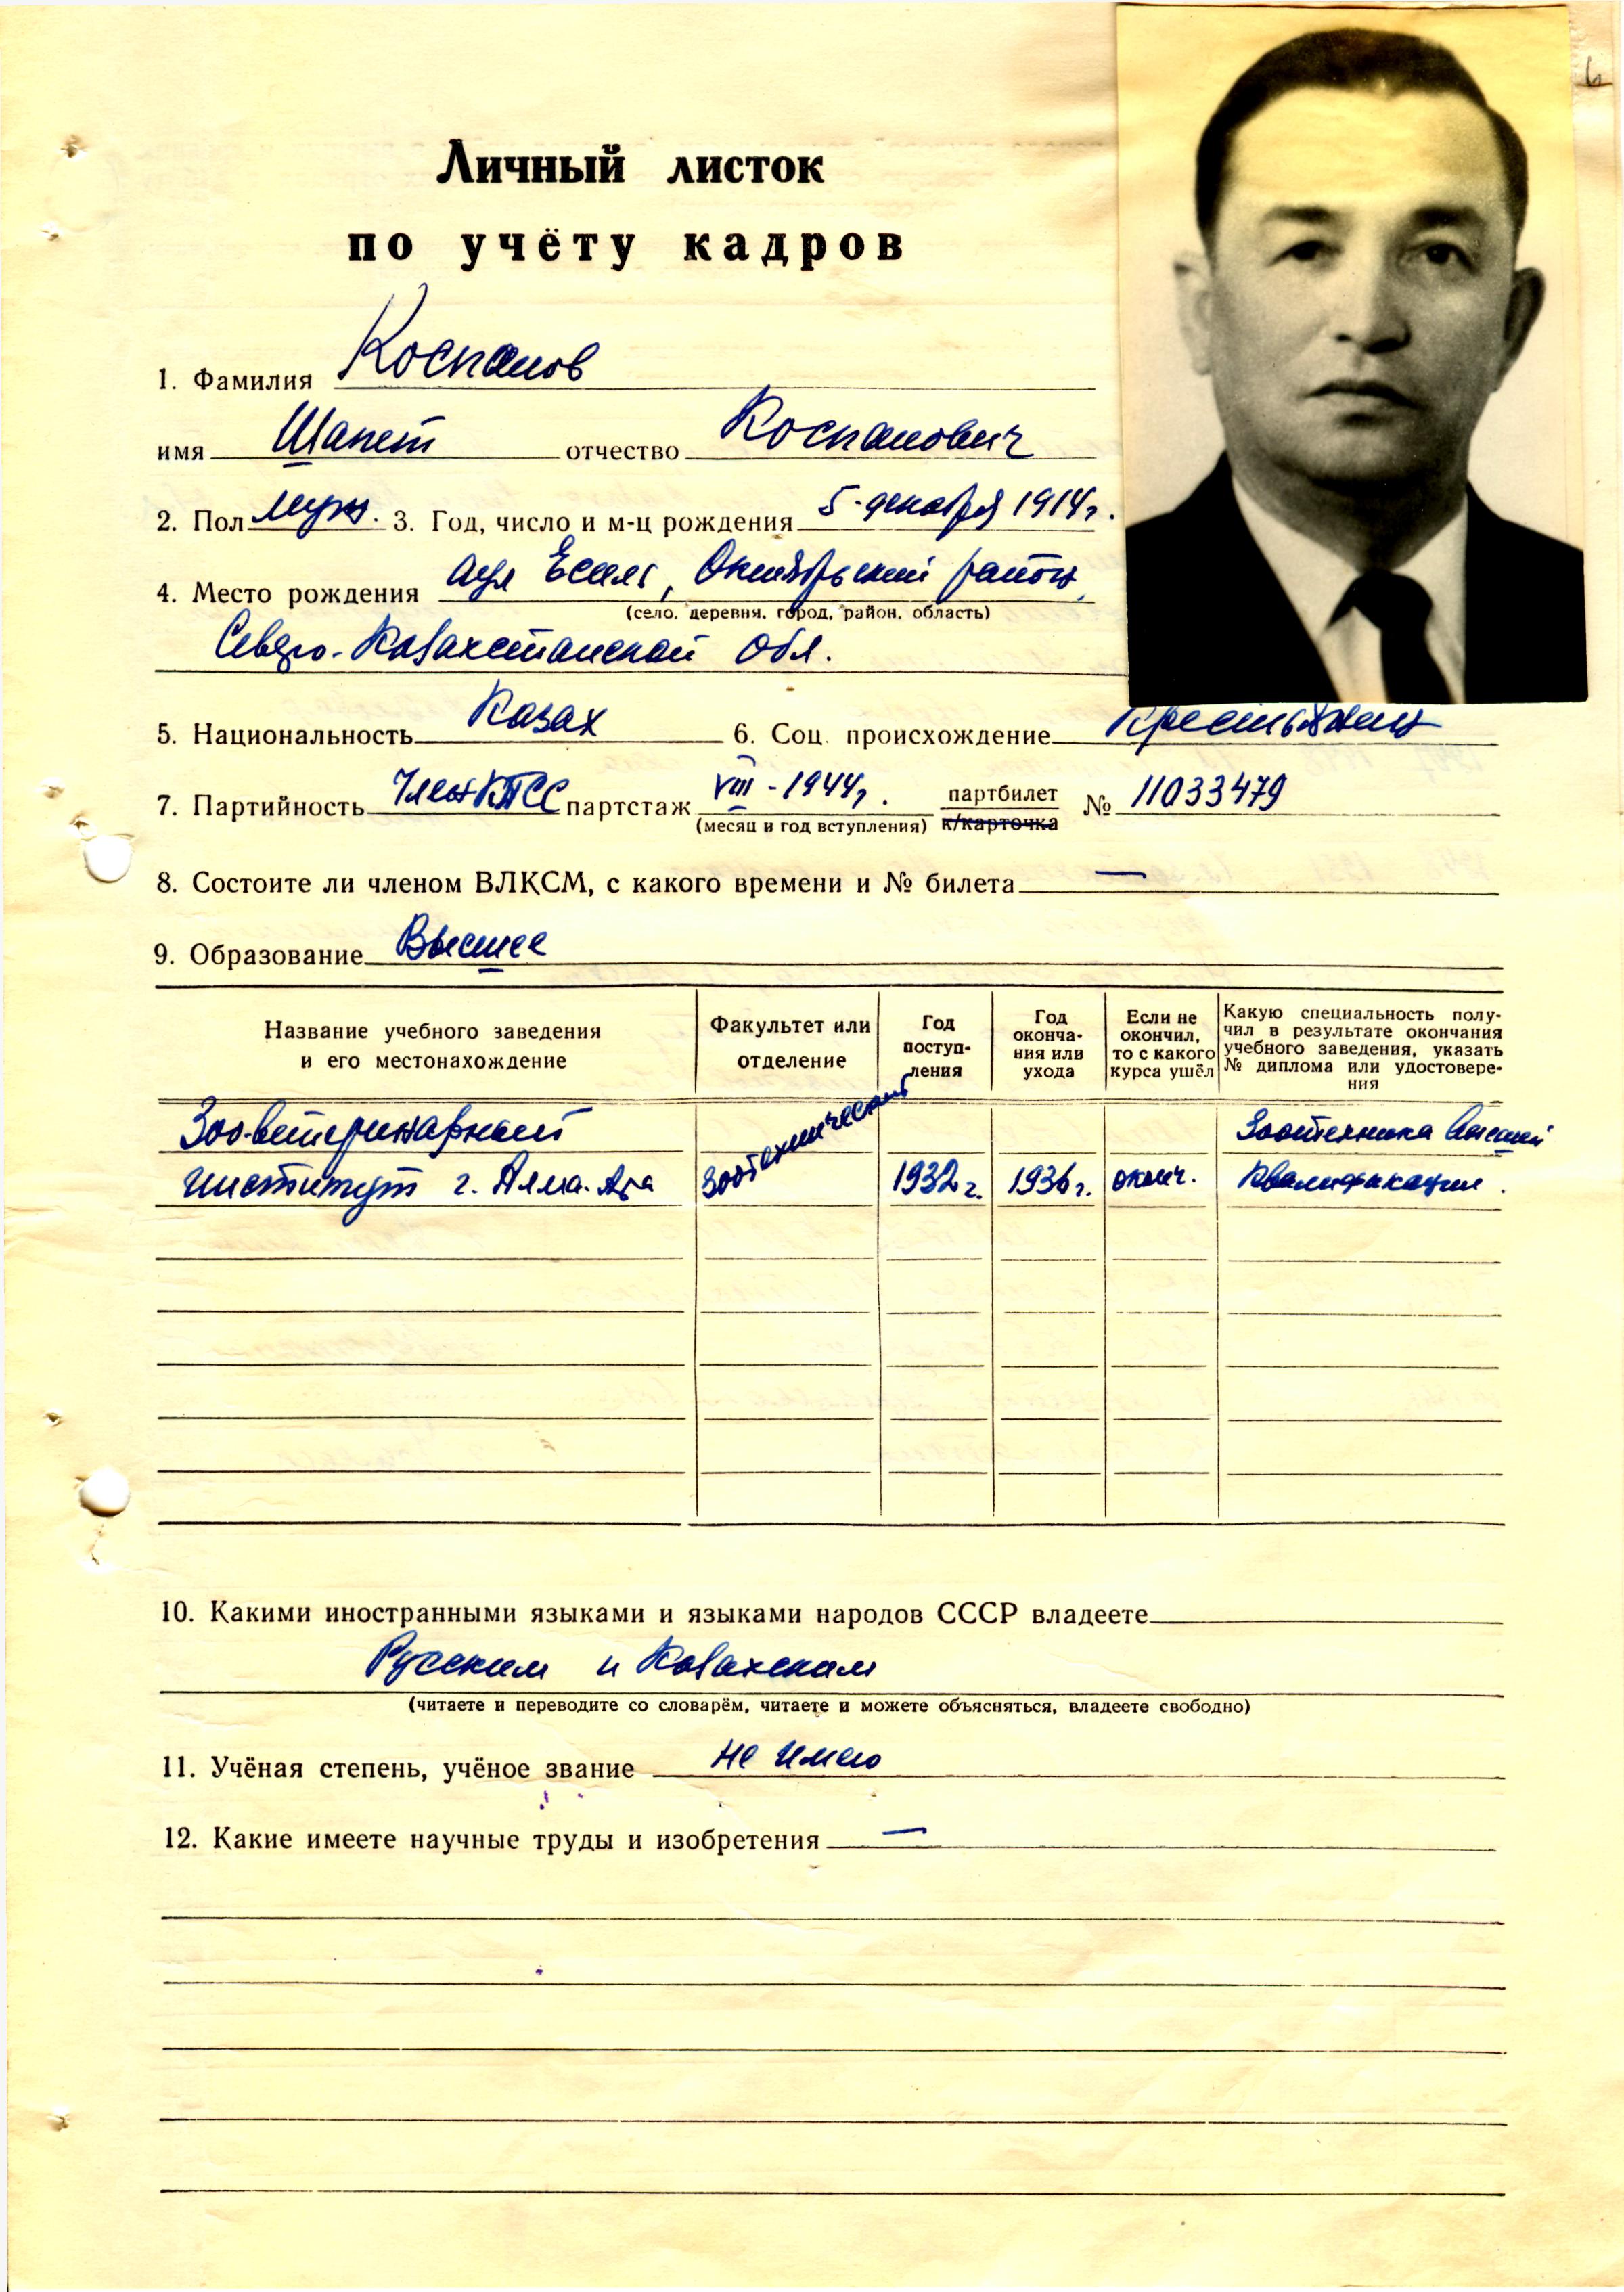 6
Личный листок
по учёту кадров
1. Фамилия Коспанов
имя Шапет отчество Коспанович
2. Пол муж. 3. Год, число и м-ц рождения 5 декабря 1914г.
4. Место рождения аул Есиль, Октябрьский район,
(село, деревня, город, район, область)
Северо-Казахстанской обл.
5. Национальность Казах 6. Соц. происхождение Крестьянин
7. Партийность Член КПСС партстаж VIII - 1944г. партбилет № 11033479
(месяц и год вступления) к/карточка
8. Состоите ли членом ВЛКСМ, с какого времени и № билета —
9. Образование Высшее
Название учебного заведения и его местонахождение
Факультет или отделение
Год поступ-
ления
Год оконча-
ния или ухода
Если не окончил, то с какого курса ушёл
Какую специальность полу-
чил в результате окончания
учебного заведения, указать
№ диплома или удостовере-
ния
Зооветеринарный
институт г. Алма-Ата
Зоотехнический
1932г.
1936г.
оконч.
Зоотехника высшей
квалификации.
10. Какими иностранными языками и языками народов СССР владеете
Русским и Казахским
(читаете и переводите со словарём, читаете и можете объясняться, владеете свободно)
11. Учёная степень, учёное звание не имею
12. Какие имеете научные труды и изобретения —